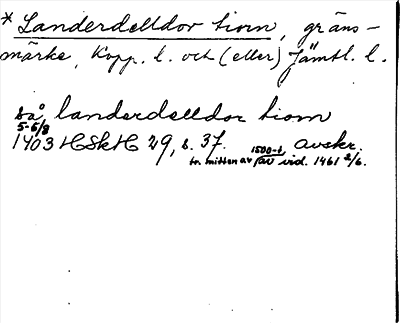 * Landerdelldor tiorn, gräns-
märke, Kopp. l. och (eller) Jämtl. l.
på landerdelldor tiorn
5-6/8
1403 HSkH 29, s. 37. 1500-t. avskr.
tr. mitten av av vid. 1461 2/6.